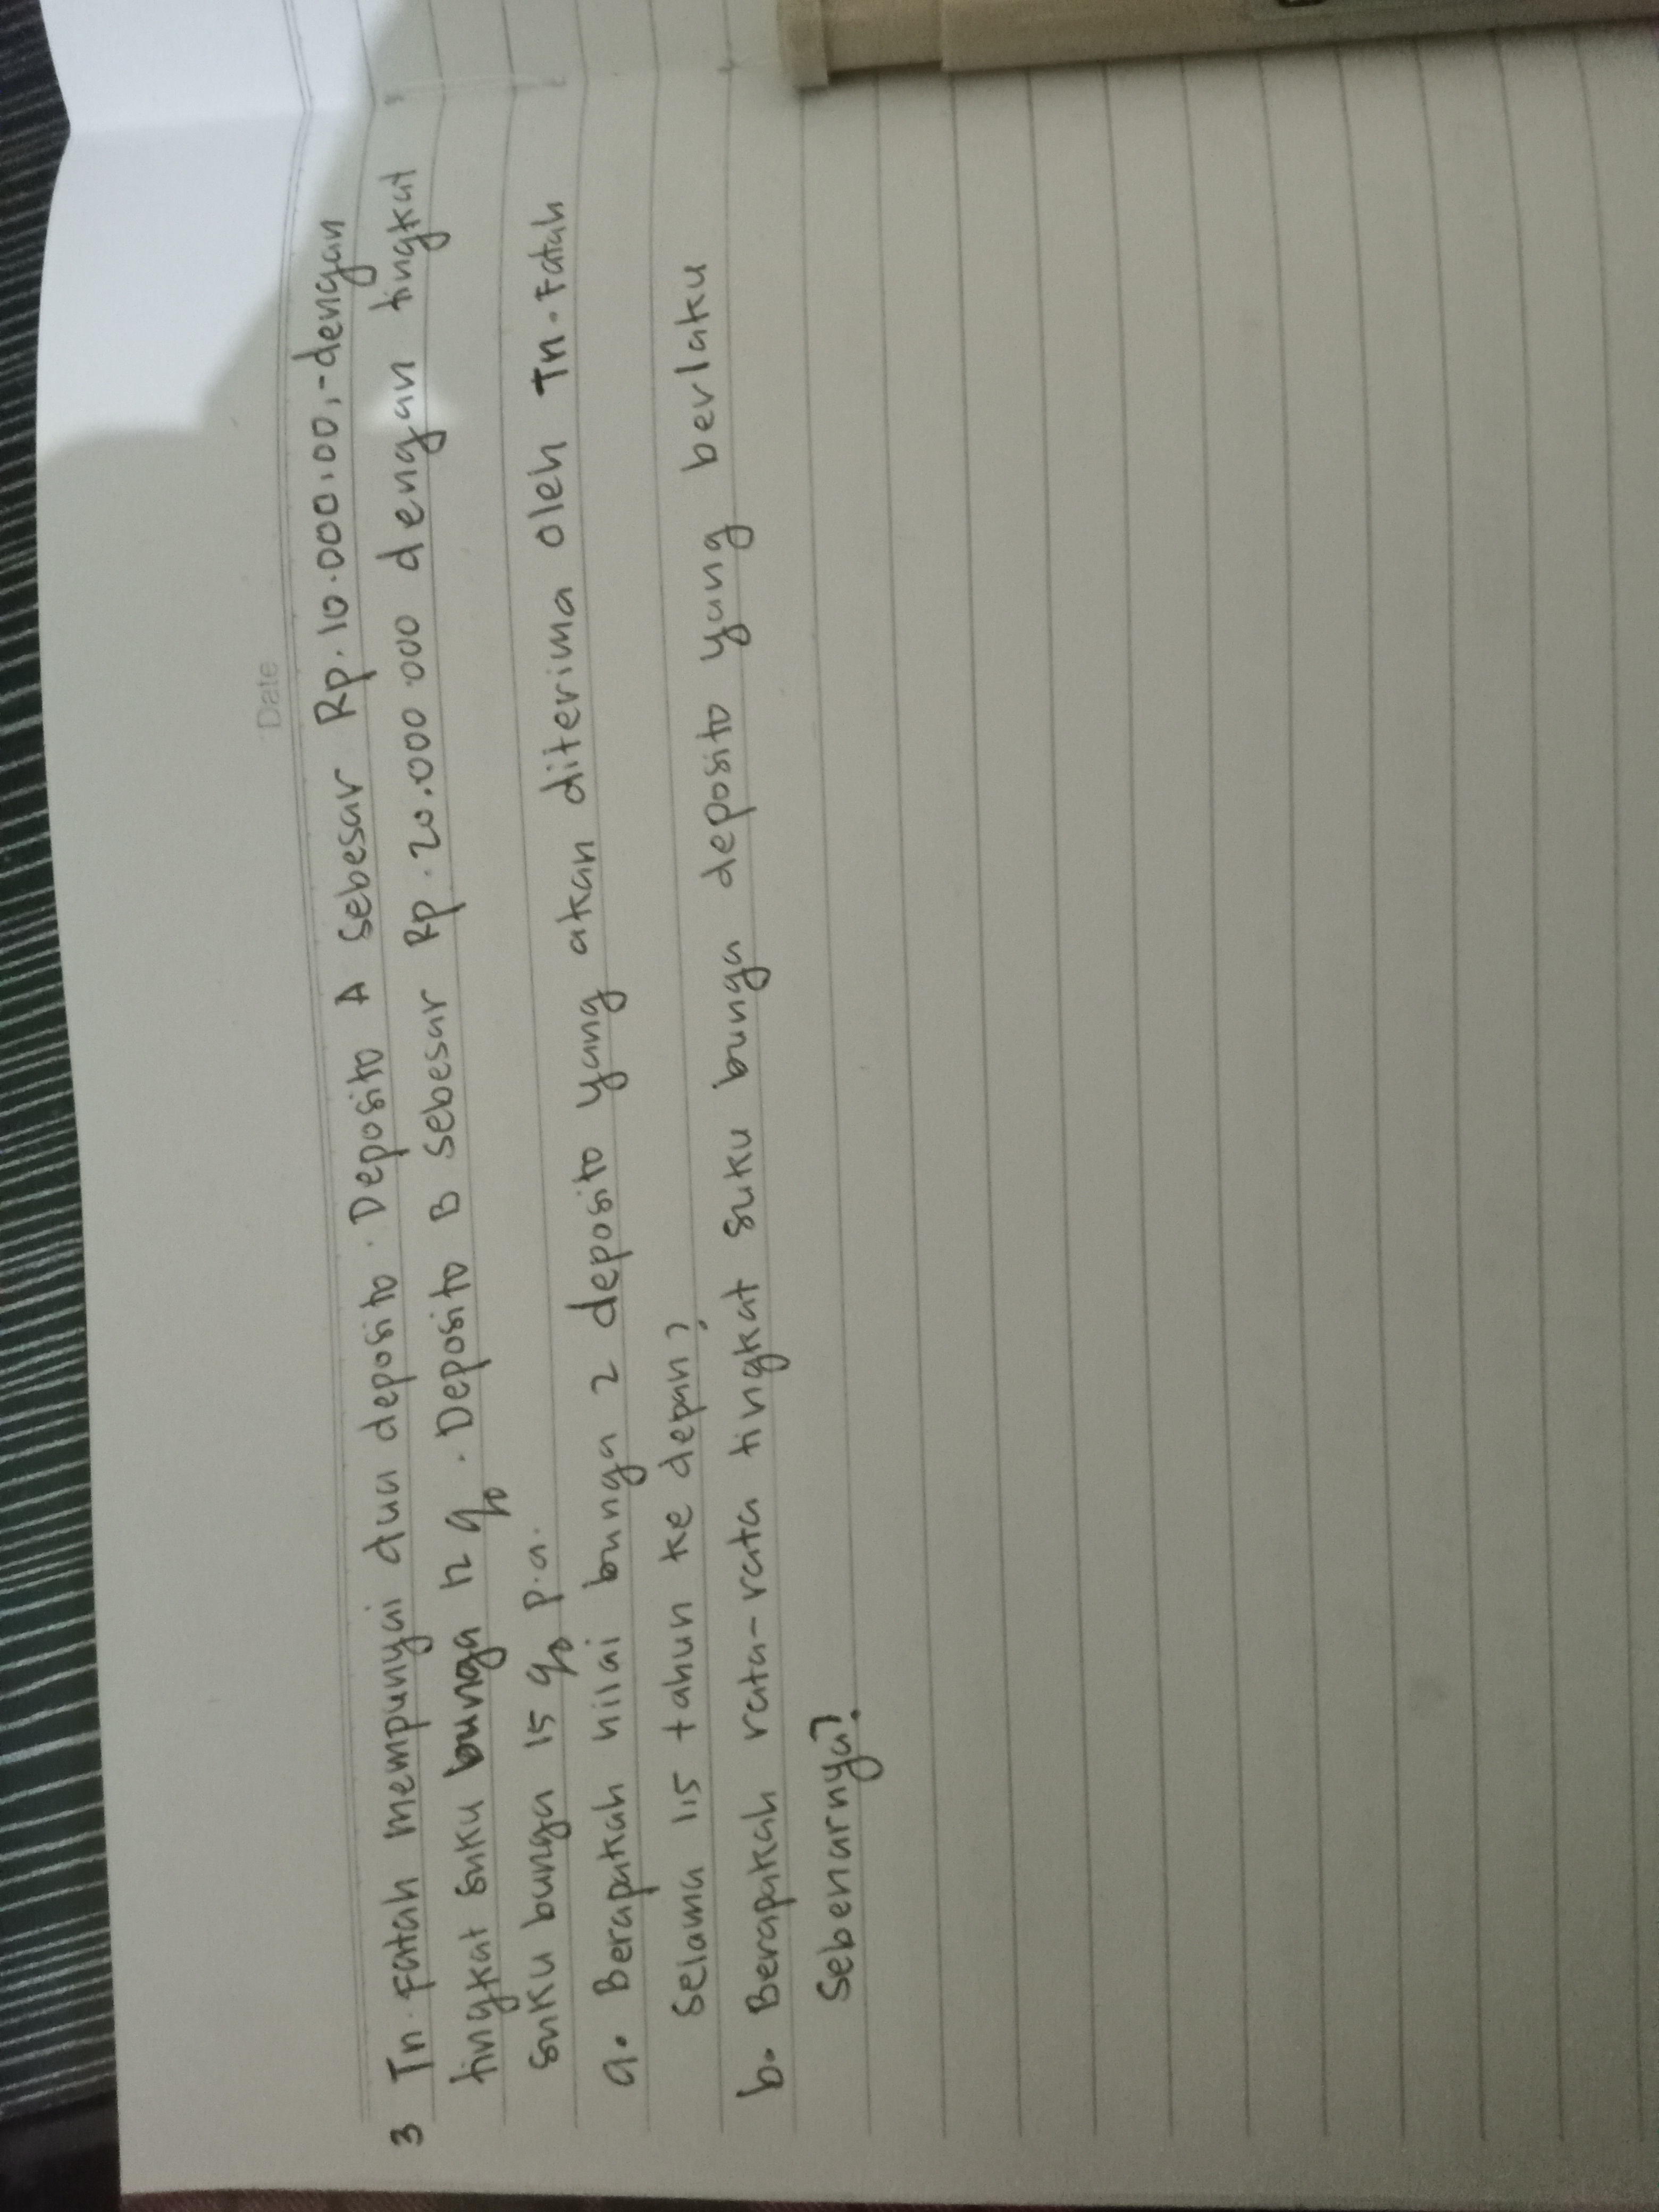 Date
3 Tn. Fatah mempunyai dua deposito. Deposito A sebesar Rp. 10.000.00,- dengan
tingkat suku bunga 12 %. Deposito B sebesar Rp. 20.000.000 dengan tingkat
suku bunga 15 % p.a.
a. Berapakah nilai bunga 2 deposito yang akan diterima oleh Tn. Fatah
selama 1,5 tahun ke depan?
b. Berapakah rata-rata tingkat suku bunga deposito yang berlaku
sebenarnya?